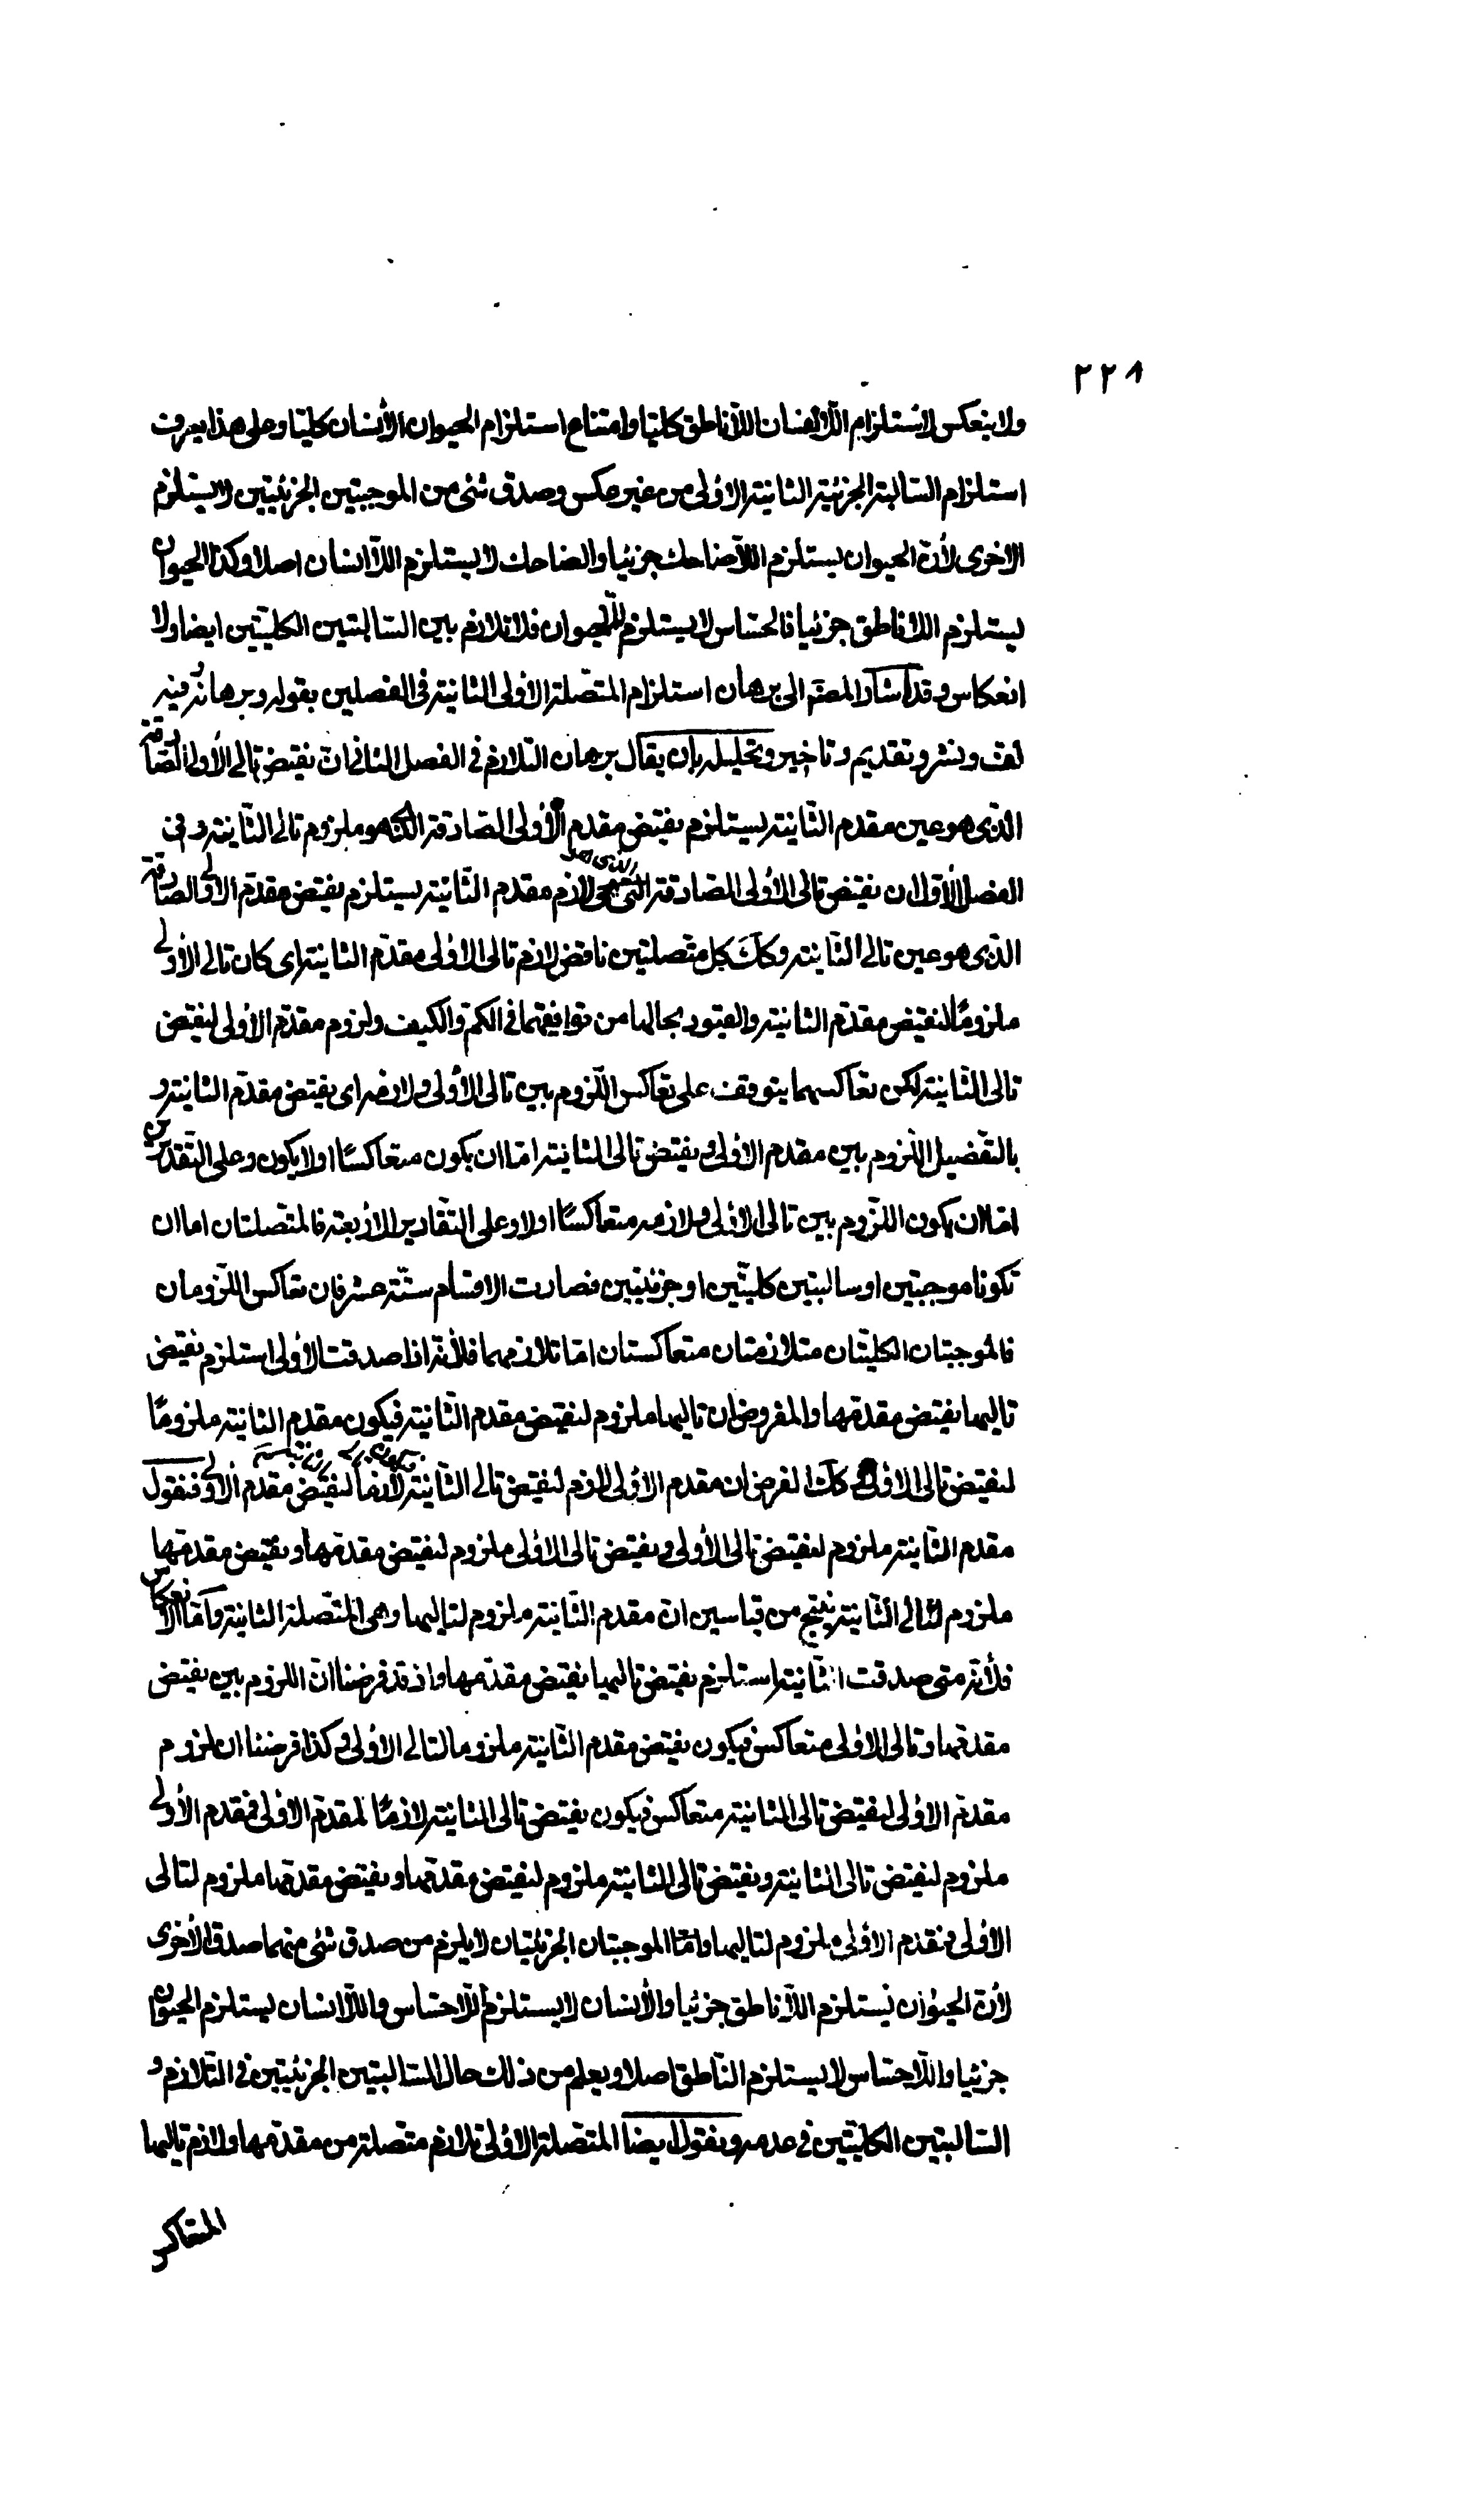 ٢٢٨
ولا ينعكس لاستلزام اللاانسان اللاناطق كليا وامتناع استلزام الحيوان الانسان كليا وعلى هذا يعرف
استلزام السالبة الجزئية الثانية الاولى من غير عكس وصدق شئ من الموجبتين الجزئيتين لا يستلزم
الاخرى لان الحيوان يستلزم اللاضاحك جزئيا والضاحك لا يستلزم اللاانسان اصلا وكذا الحيوان
يستلزم اللاناطق جزئيا فالحساس لا يستلزم للحيوان فلا تلازم بين السالبتين الكليتين ايضا ولا
انعكاس وقد اشار المصنف الى برهان استلزام المتصلة الاولى الثانية في الفصلين بقوله وبرهانه فيه
لف ونشر وتقديم وتاخير وتحليله بان يقال برهان التلازم في الفصل الثاني ان نقيض تالى الاولى الصادقة
الذى هو عين مقدم الثانية يستلزم نقيض مقدم الاولى الصادقة الذى هو ملزوم تالى الثانية وفى
الفصل الاول ان نقيض تالى الاولى الصادقة الذى هو لازم مقدم الثانية يستلزم نقيض مقدم الاولى الصادقة
الذى هو عين تالى الثانية وكك كل متصلتين ناقض لازم تالى الاولى مقدم الثانية اى كان تالى الاولى
ملزوما لنقيض مقدم الثانية والقيود بحالها من توافقهما في الكم والكيف ولزوم مقدم الاولى لنقيض
تالى الثانية لكن تعاكسهما يتوقف على تعاكس اللزوم بين تالى الاولى ولازمه اى نقيض مقدم الثانية و
بالتفصيل اللزوم بين مقدم الاولى ونقيض تالى الثانية اما ان يكون متعاكسا اولا يكون وعلى التقديرين
اما ان يكون اللزوم بين تالى الاولى ولازمه متعاكسا اولا وعلى التقادير الاربعة فالمتصلتان اما ان
تكونا موجبتين او سالبتين كليتين او جزئيتين فصارت الاقسام ستة عشر فان تعاكس اللزومان
فالموجبتان الكليتان متلازمتان متعاكستان اما تلازمهما فلانه اذا صدقت الاولى استلزم نقيض
تاليها نقيض مقدمها والمفروض ان تاليها ملزوم لنقيض مقدم الثانية فيكون مقدم الثانية ملزوما
لنقيض تالى الاولى كك الفرض ان مقدم الاولى لازم لنقيض تالى الثانية لنقيض مقدم الاولى فنقول
مقدم الثانية ملزوم لنقيض تالى الاولى ونقيض تالى الاولى ملزوم لنقيض مقدمها ونقيض مقدمها
ملزوم لتالى الثانية ينتج من قياسين ان مقدم الثانية ملزوم لتاليها وهى المتصلة الثانية واما الانعكاس
فلانه متى صدقت الثانية استلزم نقيض تاليها نقيض مقدمها واذ قد فرضنا ان اللزوم بين نقيض
مقدمها وتالى الاولى متعاكس فيكون نقيض مقدم الثانية ملزوما لتالى الاولى وكذا فرضنا ان لزوم
مقدم الاولى لنقيض تالى الثانية متعاكس فيكون نقيض تالى الثانية لازما لمقدم الاولى فمقدم الاولى
ملزوم لنقيض تالى الثانية ونقيض تالى الثانية ملزوم لنقيض مقدمها ونقيض مقدمها ملزوم لتالى
الاولى فمقدم الاولى ملزوم لتاليها واما الموجبتان الجزئيتان لا يلزم من صدق شئ منهما صدق الاخرى
لان الحيوان يستلزم اللاناطق جزئيا والانسان لا يستلزم اللاحساس واللاانسان يستلزم الحيوان
جزئيا واللاحساس لا يستلزم الناطق اصلا ويعلم من ذلك حال السالبتين الجزئيتين في التلازم و
السالبتين الكليتين في عدمه ونقول ايضا المتصلة الاولى تلازم متصلة من مقدمها ولازم تاليها
المتعاكس